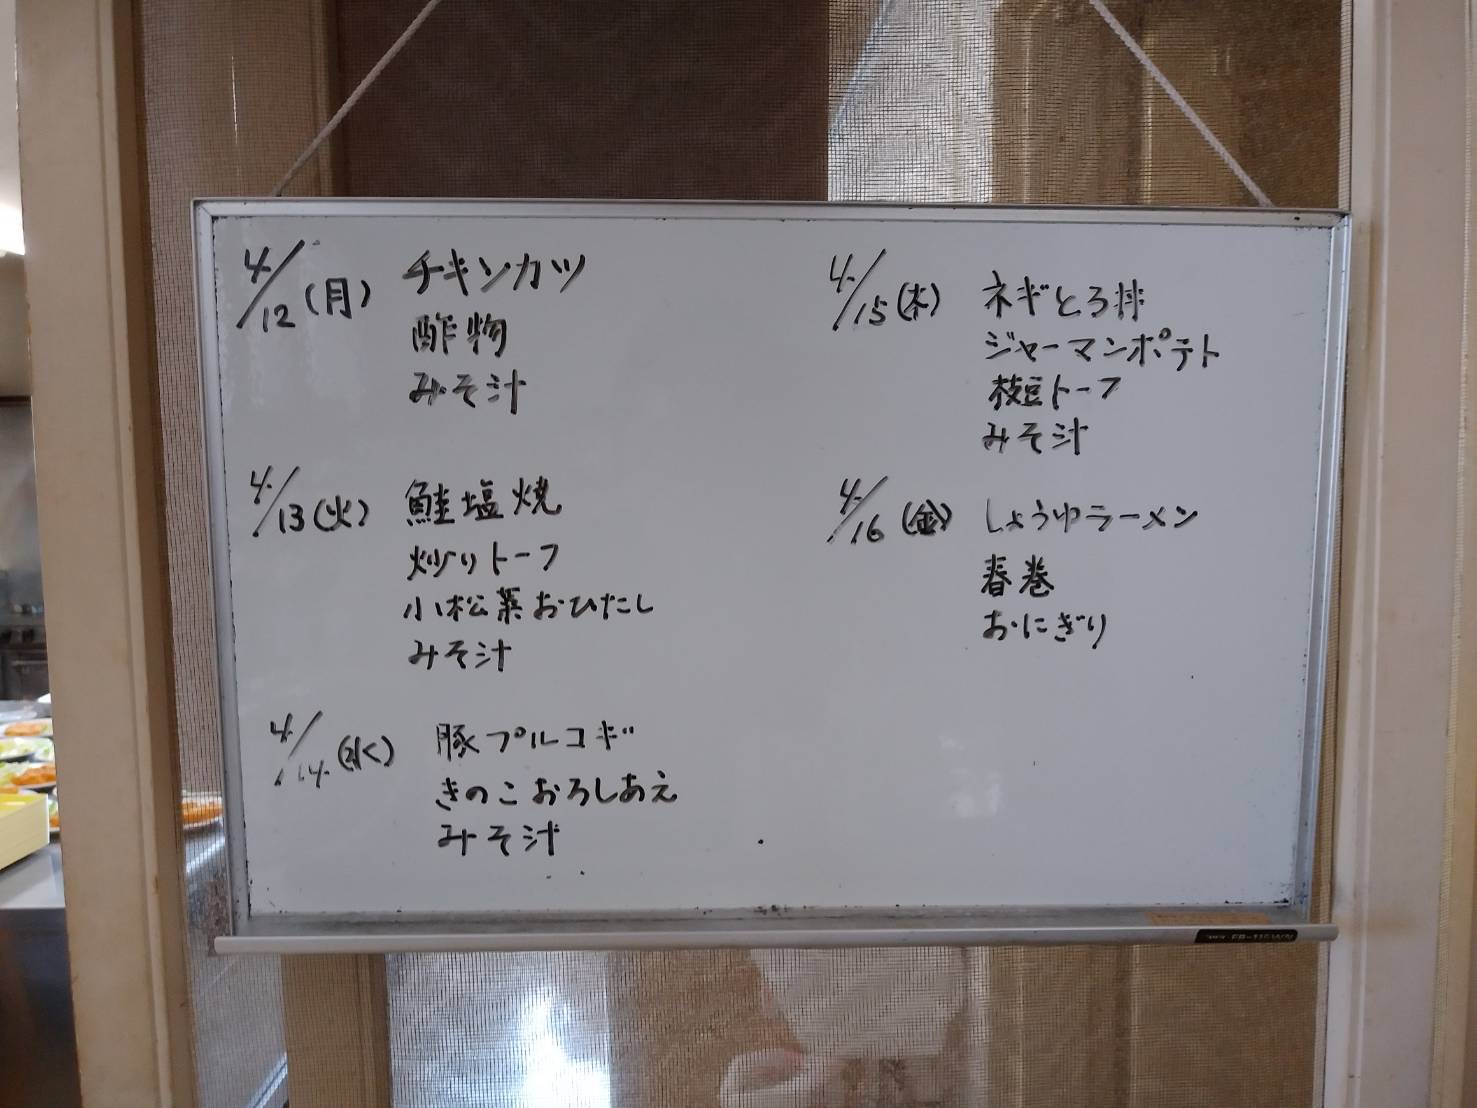 4/12(月) チキンカツ
酢物
みそ汁
4/13(火) 鮭塩焼
炒りトーフ
小松菜おひたし
みそ汁
4/14(水) 豚プルコギ
きのこおろしあえ
みそ汁
4/15(木) ネギとろ丼
ジャーマンポテト
枝豆トーフ
みそ汁
4/16(金) しょうゆラーメン
春巻
おにぎり